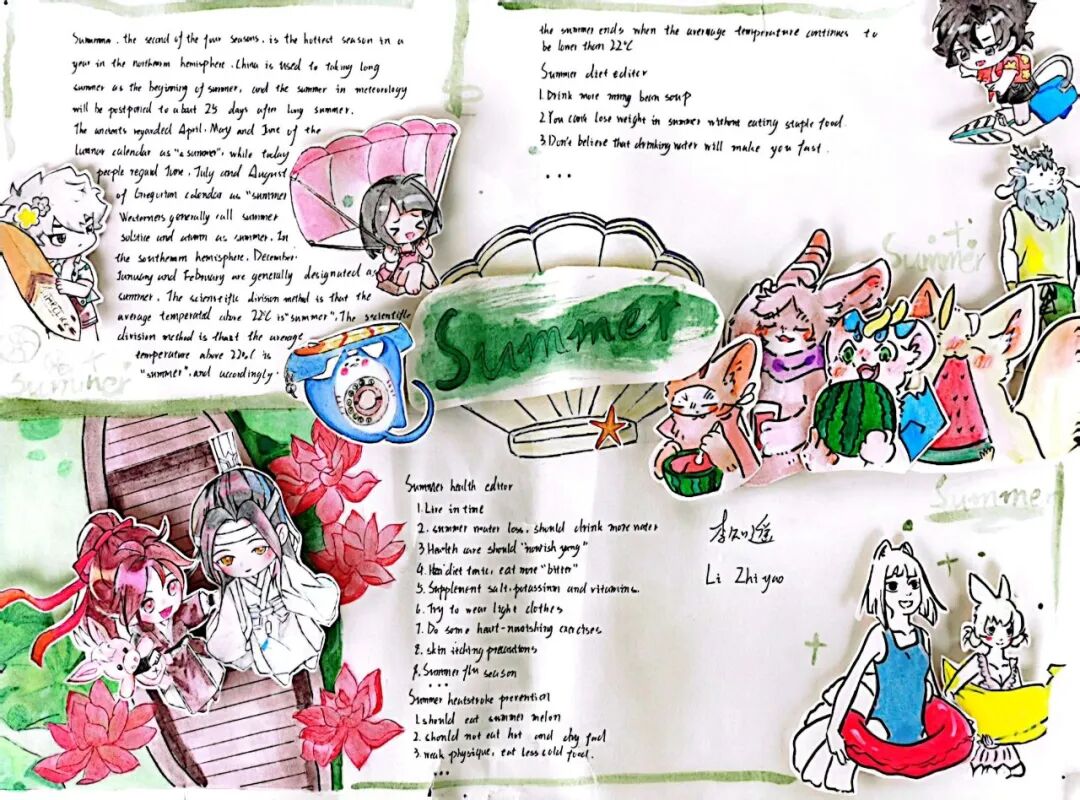 Summma. the second of the four seasons. is the hottest season in a
year in the northern hemisphere. China is used to taking long
summer as the beginning of summer, and the summer in meteorology
will be postponed to about 25 days after long summer.
The ancients regarded April. May and June of the
lunar calendar as "a summer", while today
people regard June. July and August
of Gregorian calendar as "summer
Westerners generally call summer
solstice and autumn as summer. In
the southern hemisphere. December.
January and February are generally designated as
summer. The scientific division method is that the
average temperated above 22°C is "summer". The scientific
division method is that the average
temperature above 22°C is
"summer". and accordingly.
Summer
the summer ends when the average temperature continues to
be loner than 22°C
Summer diet editor
1. Drink more mung bean soup
2. You can lose weight in summer without eating staple food.
3. Don't believe that drinking water will make you fast.
...
Summer
Summer
Summer health editor
1. Live in time
2. summer water loss. should drink more water
3 Health care should "nourish yang"
4. diet tonic, eat more "bitter"
5. Supplement salt. potassium and vitamins.
6. Try to wear light clothes
7. Do some heart-nourishing exercises
8. skin itching precautions
8. Summer flu season
...
Summer heatstroke prevention
1. should eat summer melon
2. should not eat hot and dry food
3. weak physique, eat less cold food.
...
Summer
李知遥
Li Zhiyao